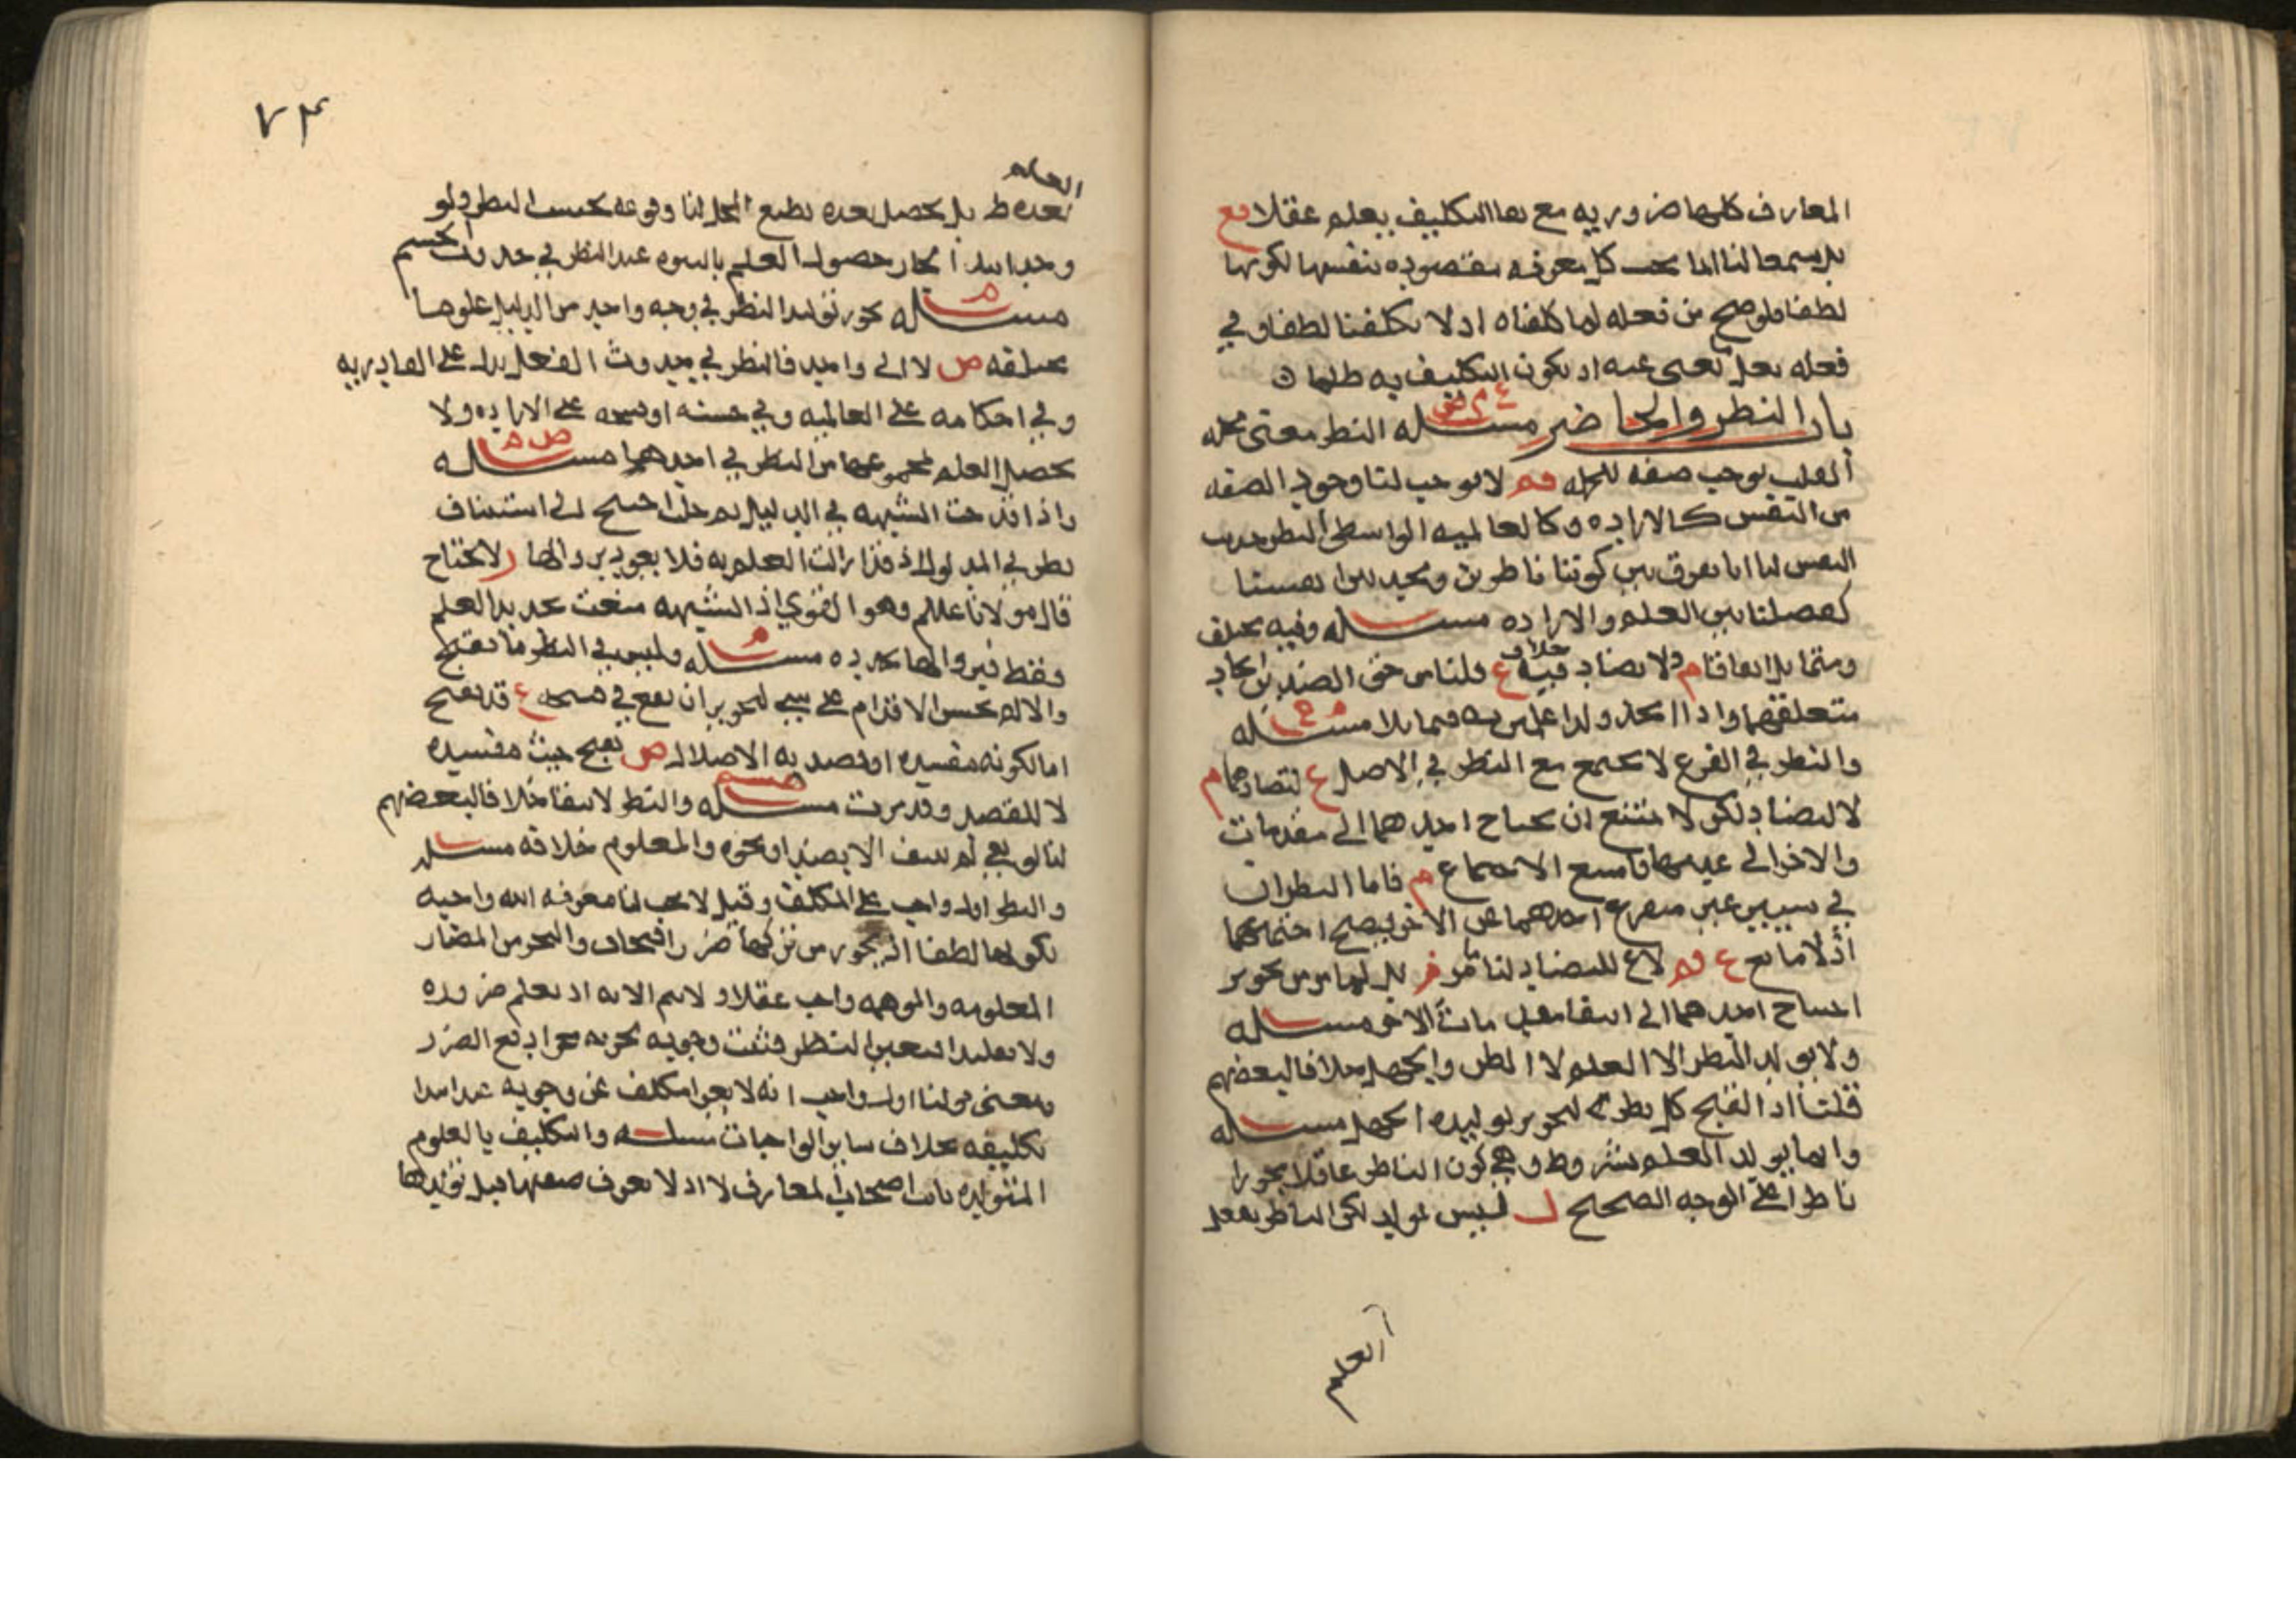 المعارف كلها ضروريه مع بقا التكليف يعلم عقلا مع
بل سمعا لنا انما يجب كل معرفه مقصوده بنفسها لكونها
لطفا فلو صح من فعله لما كلفناه اذ لا يكلفنا لطفا وفي
فعله تعلى عنه اذ يكون التكليف به ظلما
باب النظر والخاطر مسله النظر معنى محله
القلب يوجب صفه للجمله قم لا يوجب لنا وجود الصفه
من النفس كالاراده وكالعالميه الواسطى النظر حديث
النفس لنا انا نفرق بين كوننا ناظرين ونجد من انفسنا
كفصلنا بين العلم والاراده مسله وفيه مختلف
ومتماثل اتفاقا م ولا تضاد فيه خلاف ع قلنا من حق الضدين اتحاد
متعلقهما واذا اتحد ولدا علمين به فتماثلا مسله
والنظر في الفرع لا يجتمع مع النظر في الاصل ع لتضادهما م
لا لتضاد لكن لا يمتنع ان يحتاج احدهما الى مقدمات
والاخر الى غيرها فامتنع الاجتماع م فاما النظران
في سببين غير متفرع احدهما على الاخر فيصح اجتماعهما
اذ لا مانع ع قم لا ع للتضاد لنا ما مر فر بل لما مر من تجويز
احتياج احدهما الى انتفا مقدمات الاخر مسله
ولا يولد النظر الا العلم لا الظن والجهل خلافا لبعضهم
قلت اذا لقبح كل نظر لتجويز توليده الجهل مسله
وانما يولد العلم بشروط وهي كون الناظر عاقلا مجوزا
ناظرا على الوجه الصحيح ليس بمولد لكن الناظر يفعل
العلم
٧٤
العلم
بعده ط بل يحصل بعده بطبع المحل لنا وقوعه بحسب النظر ولو
مسله يجوز توليد النظر في وجه واحد من الدليل علوما
مختلفه ص لا الى واحد فالنظر في حدوث الفعل يدل على القادريه
وفي احكامه على العالميه وفي حسنه او قبحه على الاراده ولا
يحصل العلم بمجموعها من النظر في احدهما مسله
واذا قدحت الشبهه في الدليل ثم حل احتيج الى استيناف
نظر في المدلول اذ قد زالت العلم به فلا يعود بزوالها لا يحتاج
قال مولانا عللم وهو القوي اذ الشبهه منعت تجديد العلم
فقط فبزوالها تجدده مسله وليس في النظر ما يقبح
والا لم يحسن الاقدام على شي لتجويز ان يقع في قبيحه ع قد يقبح
اما لكونه مفسده او قصد به الاضلال ص يقبح حيث مفسده
لا للقصد وقد مرت مسله والنظر لا يبقا خلافا لبعضهم
لنا لو بقي لم ينتف الا بضد او نحوه والمعلوم خلافه مسله
والنظر اول واجب على المكلف وقيل لا يجب لنا معرفه الله واجبه
لكونها لطفا اذ يجوز من تركها ضررا فيخاف والتحرز من المضار
المعلومه والموهمه واجب عقلا ولا يتم الا به اذ يعلم ضروره
ولا تقليدا فتعين النظر فثبت وجوبه تحرزه دفع الضرر
ومعنى قولنا اول واجب انه لا يعرا مكلف عن وجوبه عند ابتدا
تكليفه بخلاف ساير الواجبات مسله والتكليف بالعلوم
المتولده باب اصحاب المعارف لا اذ لا تعرف صفتها قبل توليدها